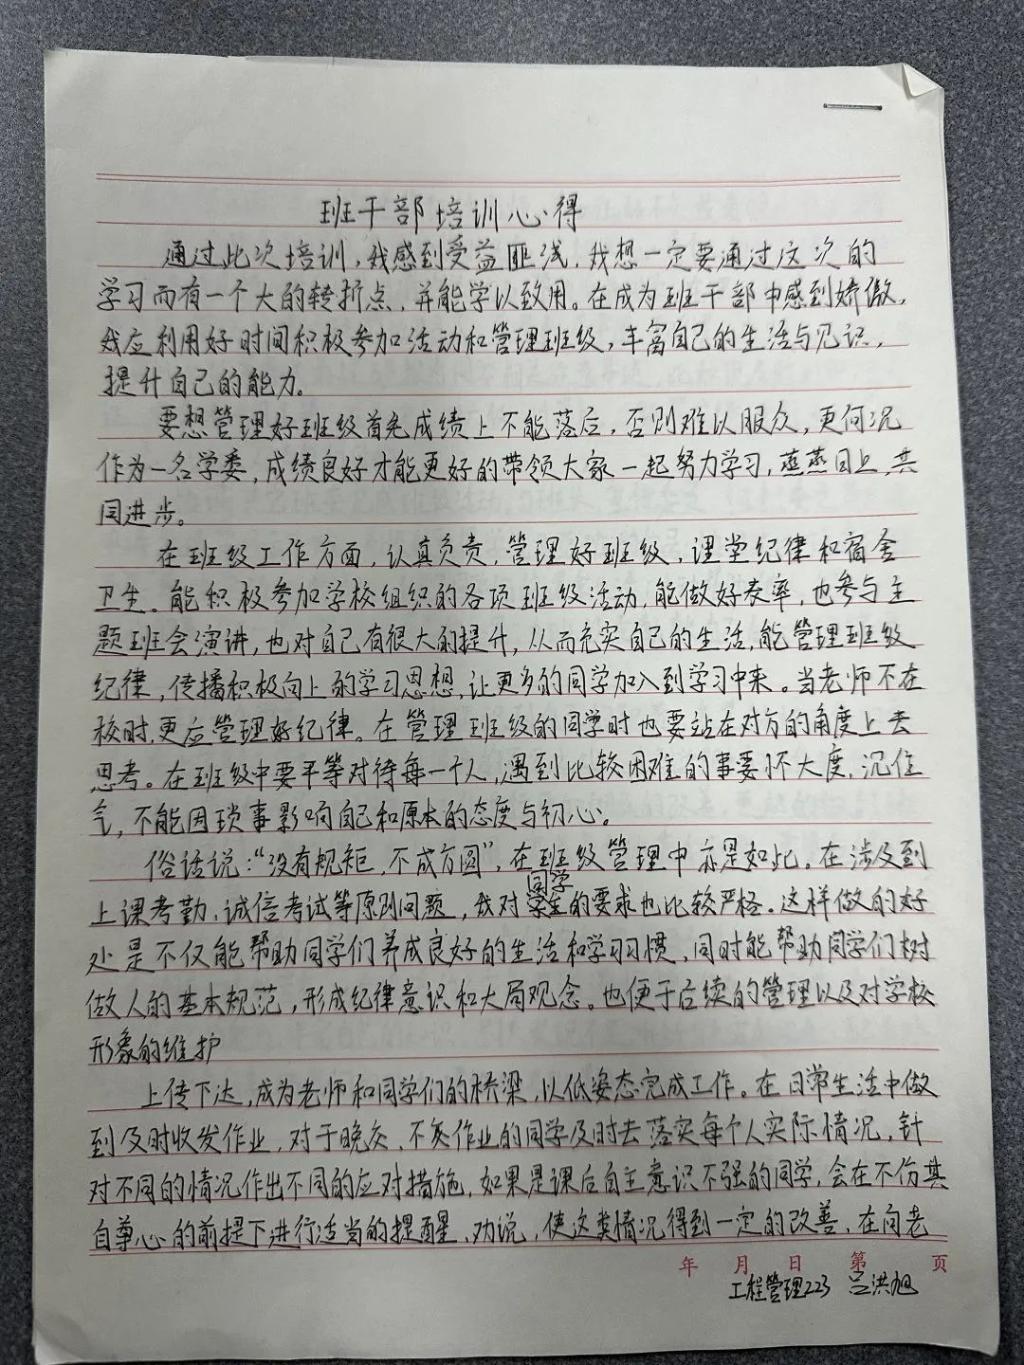 班干部培训心得
通过此次培训，我感到受益匪浅，我想一定要通过这次的
学习而有一个大的转折点，并能学以致用。在成为班干部中感到娇傲，
我应利用好时间积极参加活动和管理班级，丰富自己的生活与见识，
提升自己的能力。
要想管理好班级首先成绩上不能落后，否则难以服众，更何况
作为一名学委，成绩良好才能更好的带领大家一起努力学习，蒸蒸日上，共
同进步。
在班级工作方面，认真负责，管理好班级，课堂纪律和宿舍
卫生。能积极参加学校组织的各项班级活动，能做好表率，也参与主
题班会演讲，也对自己有很大的提升，从而充实自己的生活，能管理班级
纪律，传播积极向上的学习思想，让更多的同学加入到学习中来。当老师不在
校时，更应管理好纪律。在管理班级的同学时也要站在对方的角度上去
思考。在班级中要平等对待每一个人，遇到比较困难的事要怀大度，沉住
气，不能因琐事影响自己和原本的态度与初心。
俗话说：“没有规矩，不成方圆”，在班级管理中亦是如此，在涉及到
上课考勤，诚信考试等原则问题，我对同学的要求也比较严格。这样做的好
处是不仅能帮助同学们养成良好的生活和学习习惯，同时能帮助同学们树
做人的基本规范，形成纪律意识和大局观念。也便于后续的管理以及对学校
形象的维护
上传下达，成为老师和同学们的桥梁，以低姿态完成工作。在日常生活中做
到及时收发作业，对于晚交、不交作业的同学及时去落实每个人实际情况，针
对不同的情况作出不同的应对措施，如果是课后自主意识不强的同学，会在不伤其
自尊心的前提下进行适当的提醒，劝说，使这类情况得到一定的改善，在向老
年 月 日 第 页
工程管理223 吕洪旭